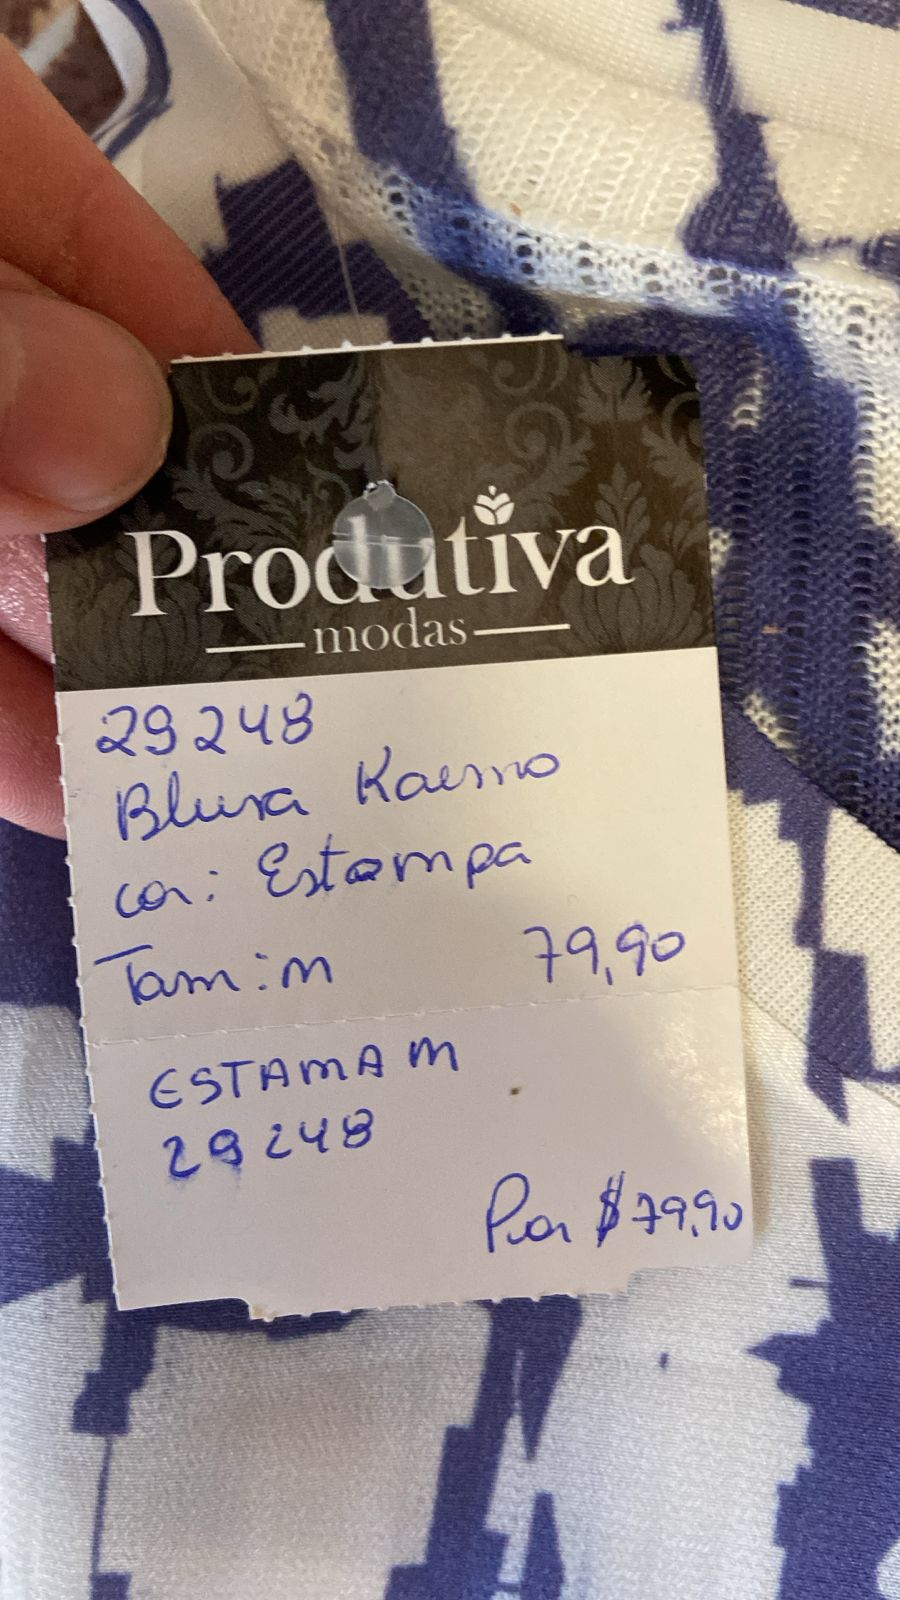 Produtiva
modas
29248
Blusa
cor: Estampa
Tam: M 79,90
ESTAMA M
29248
Por $79,90